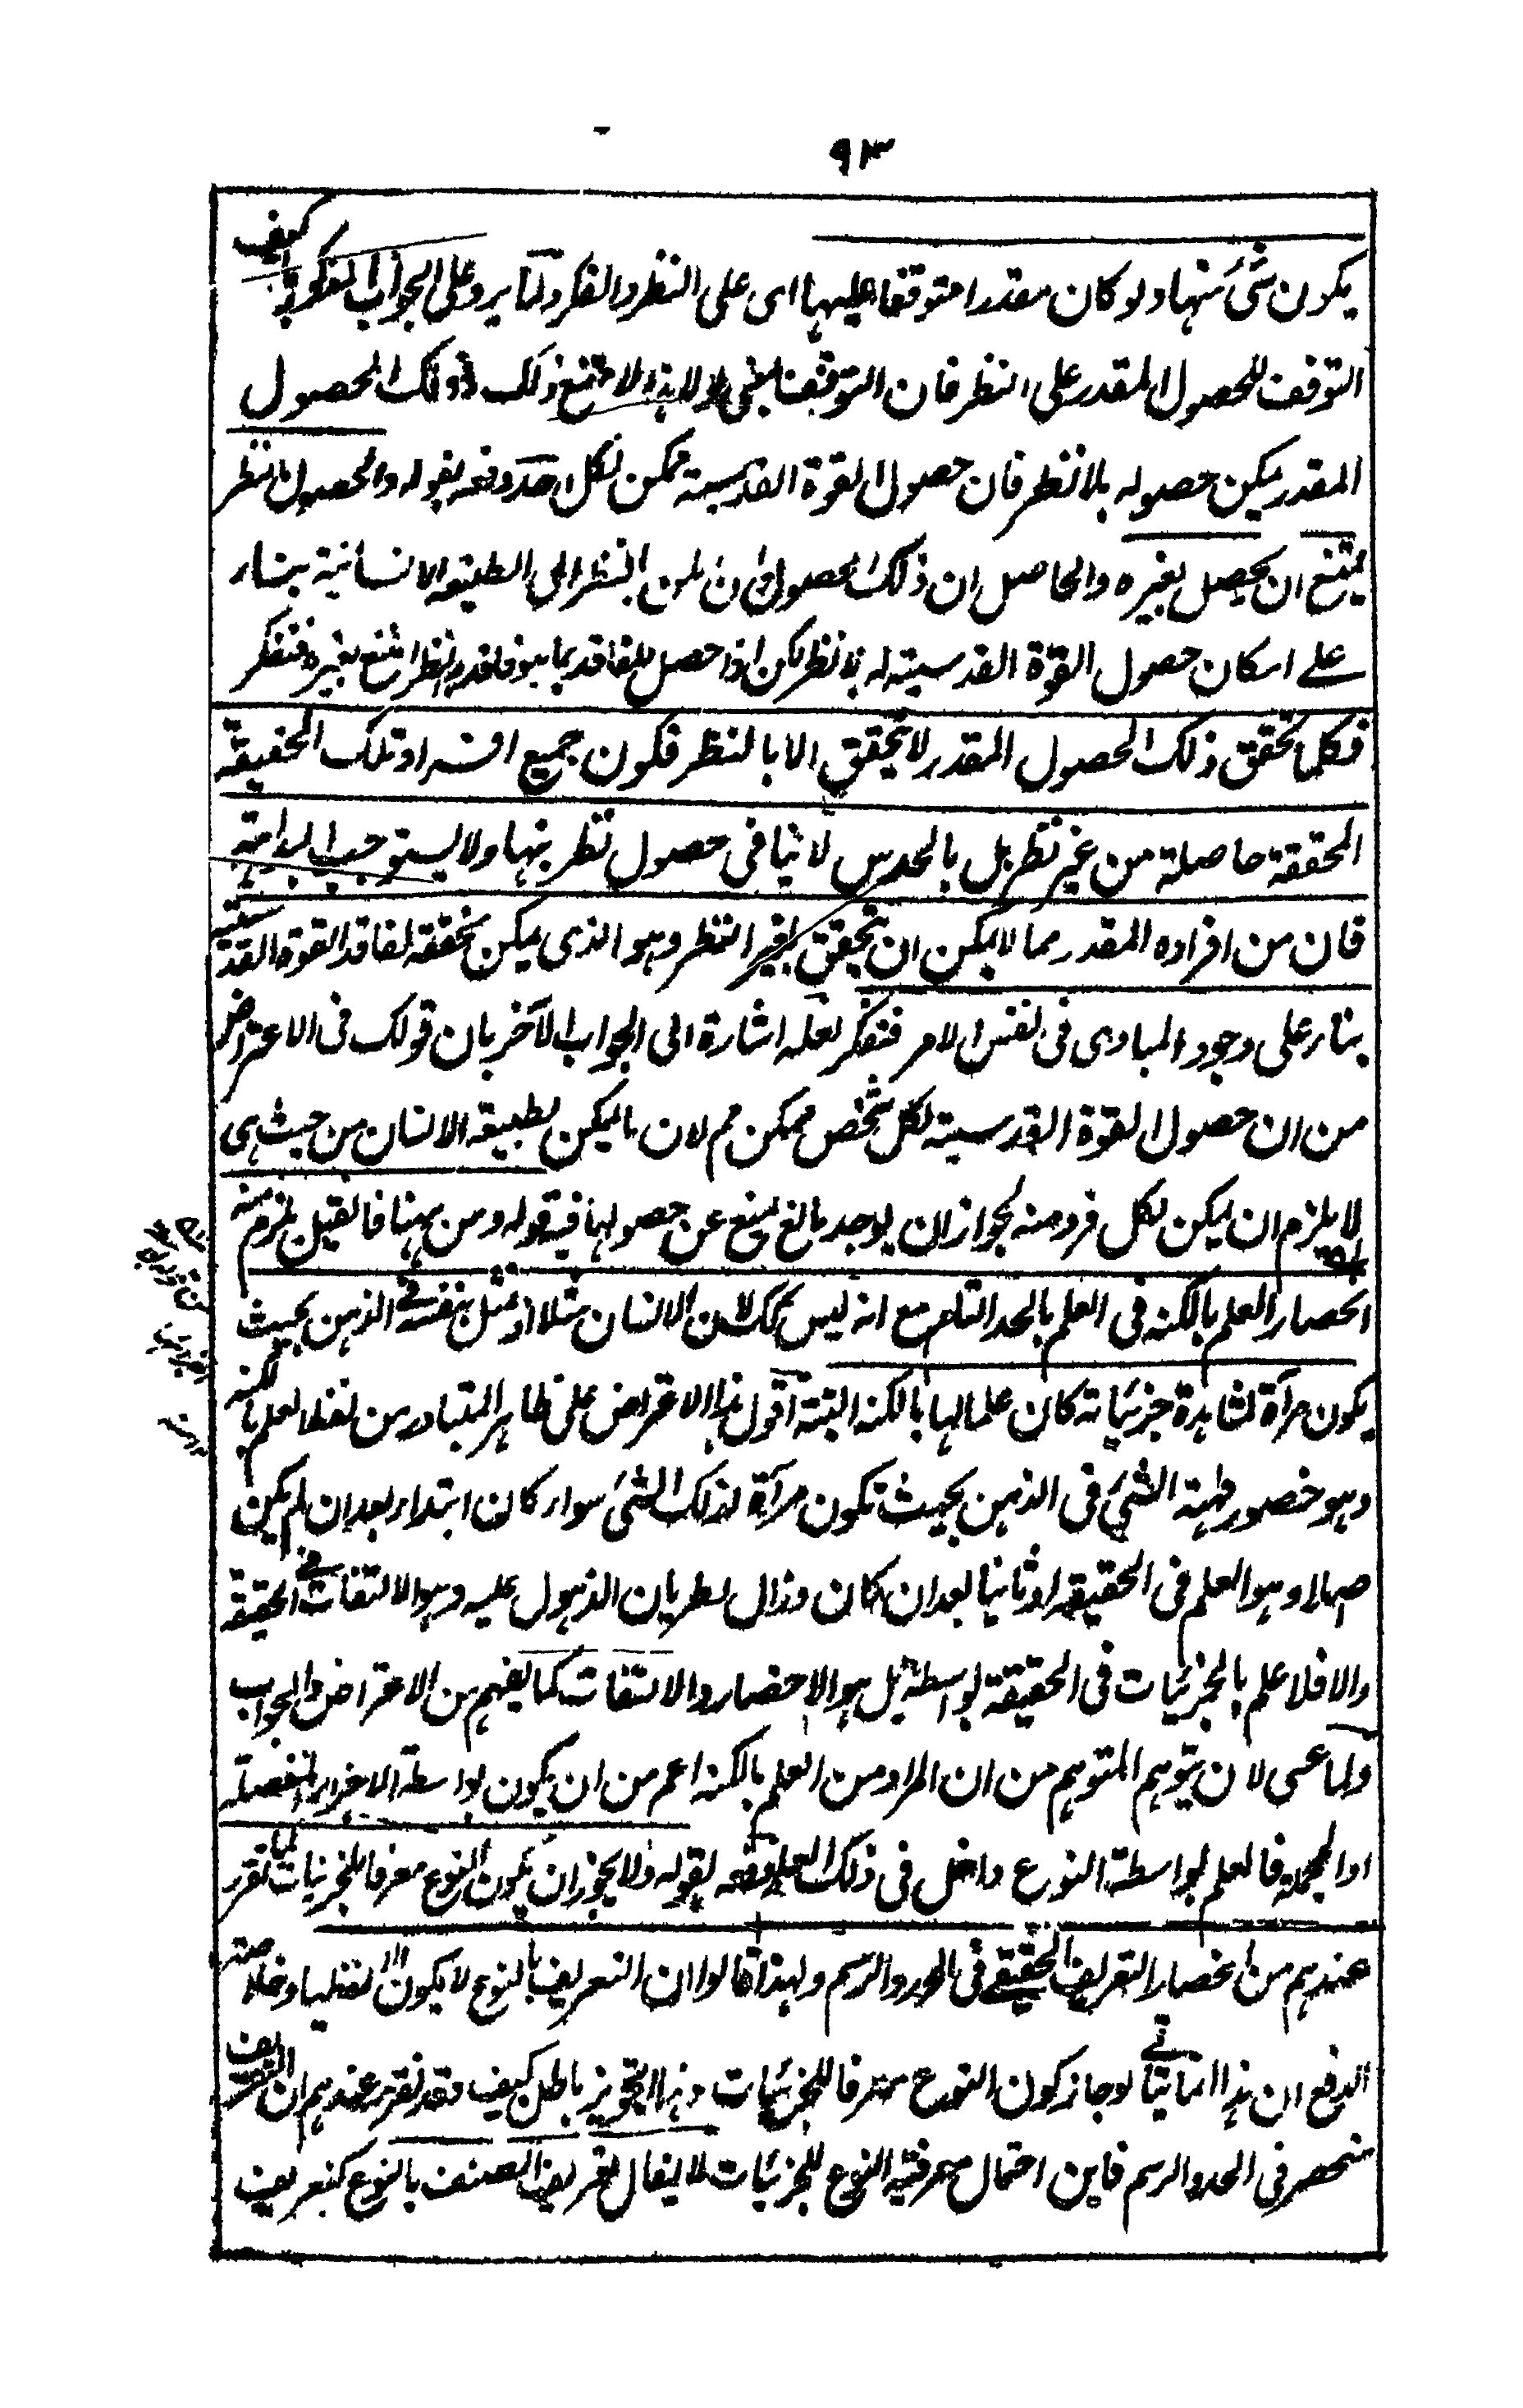 ٩٣
يكون شئ منها ولو كان مقدرا متوقفا عليها اى على النظر والفكر ولما يرد على الجواب المذكور كيف
التوقف للحصول المقدر على النظر فان التوقف لولاه لامتنع ذلك وذلك الحصول
المقدر يمكن حصوله بلا نظر فان حصول القوة القدسية ممكن لكل احد دفعه بقوله والحصول بالنظر
يمتنع ان يحصل بغيره والحاصل ان ذلك الحصول وان امكن بالنظر الى الطبيعة الانسانية بناء
على امكان حصول القوة القدسية له بلا نظر لكن اذا حصل للفاقد بما هو فاقد بالنظر امتنع بغيره فتفكر
فكلما تحقق ذلك الحصول المقدر لا يتحقق الا بالنظر فكون جميع افراد تلك الحقيقة
المحققة حاصلة من غير نظر بل بالحدس لا ينافى حصول نظريتها ولا يستوجب البداهة
فان من افراده المقدر مما لا يمكن ان يتحقق بغير النظر وهو الذى يمكن تحققه لفاقد القوة القدسية
بناء على وجود المبادى فى نفس الامر فتفكر لعله اشارة الى الجواب الآخر بان قولك فى الاعتراض
من ان حصول القوة القدسية لكل شخص ممكن مم لان ما يمكن لطبيعة الانسان من حيث هى
لا يلزم ان يمكن لكل فرد منه لجواز ان يوجد مانع يمنع عن حصولها فيه قوله ومن ههنا فانقيل يلزم منه
انحصار العلم بالكنه فى العلم بالحد التام مع انه ليس كك لان الانسان مثلا اذا تمثل بنفسه فى الذهن بحيث
يكون مرآة لمشاهدة جزئياته كان علما لها بالكنه البتة اقول هذا الاعتراض على ظاهر المتبادر من لفظ العلم بالكنه
وهو حضور مهية الشئ فى الذهن بحيث تكون مرآة لذلك الشئ سواء كان ابتداء بعد ان لم يكن
اصلا وهو العلم فى الحقيقة او ثانيا بعد ان كان وزال لطريان الذهول عليه وهو الالتفات فى الحقيقة
والا فلا علم بالجزئيات فى الحقيقة بواسطة بل هو الاحضار والالتفات كما يفهم من الاعتراض والجواب
ولما عسى لان يتوهم المتوهم من ان المراد من العلم بالكنه اعم من ان يكون بواسطة الاجزاء المفصلة
او المجملة فالعلم بواسطة النوع داخل فى ذلك العلم دفعه بقوله ولا يجوز ان يكون النوع معرفا للجزئيات لما تقرر
عندهم من انحصار التعريف الحقيقى فى الحد والرسم ولهذا قالوا ان التعريف بالنوع لا يكون الا لفظيا وخلاصة
الدفع ان هذا انما يتأتى لو جاز كون النوع معرفا للجزئيات وهذا التجويز باطل كيف وقد تقرر عندهم ان التعريف
منحصر فى الحد والرسم فاين احتمال معرفية النوع للجزئيات لا يقال تعريف الصنف بالنوع كتعريف